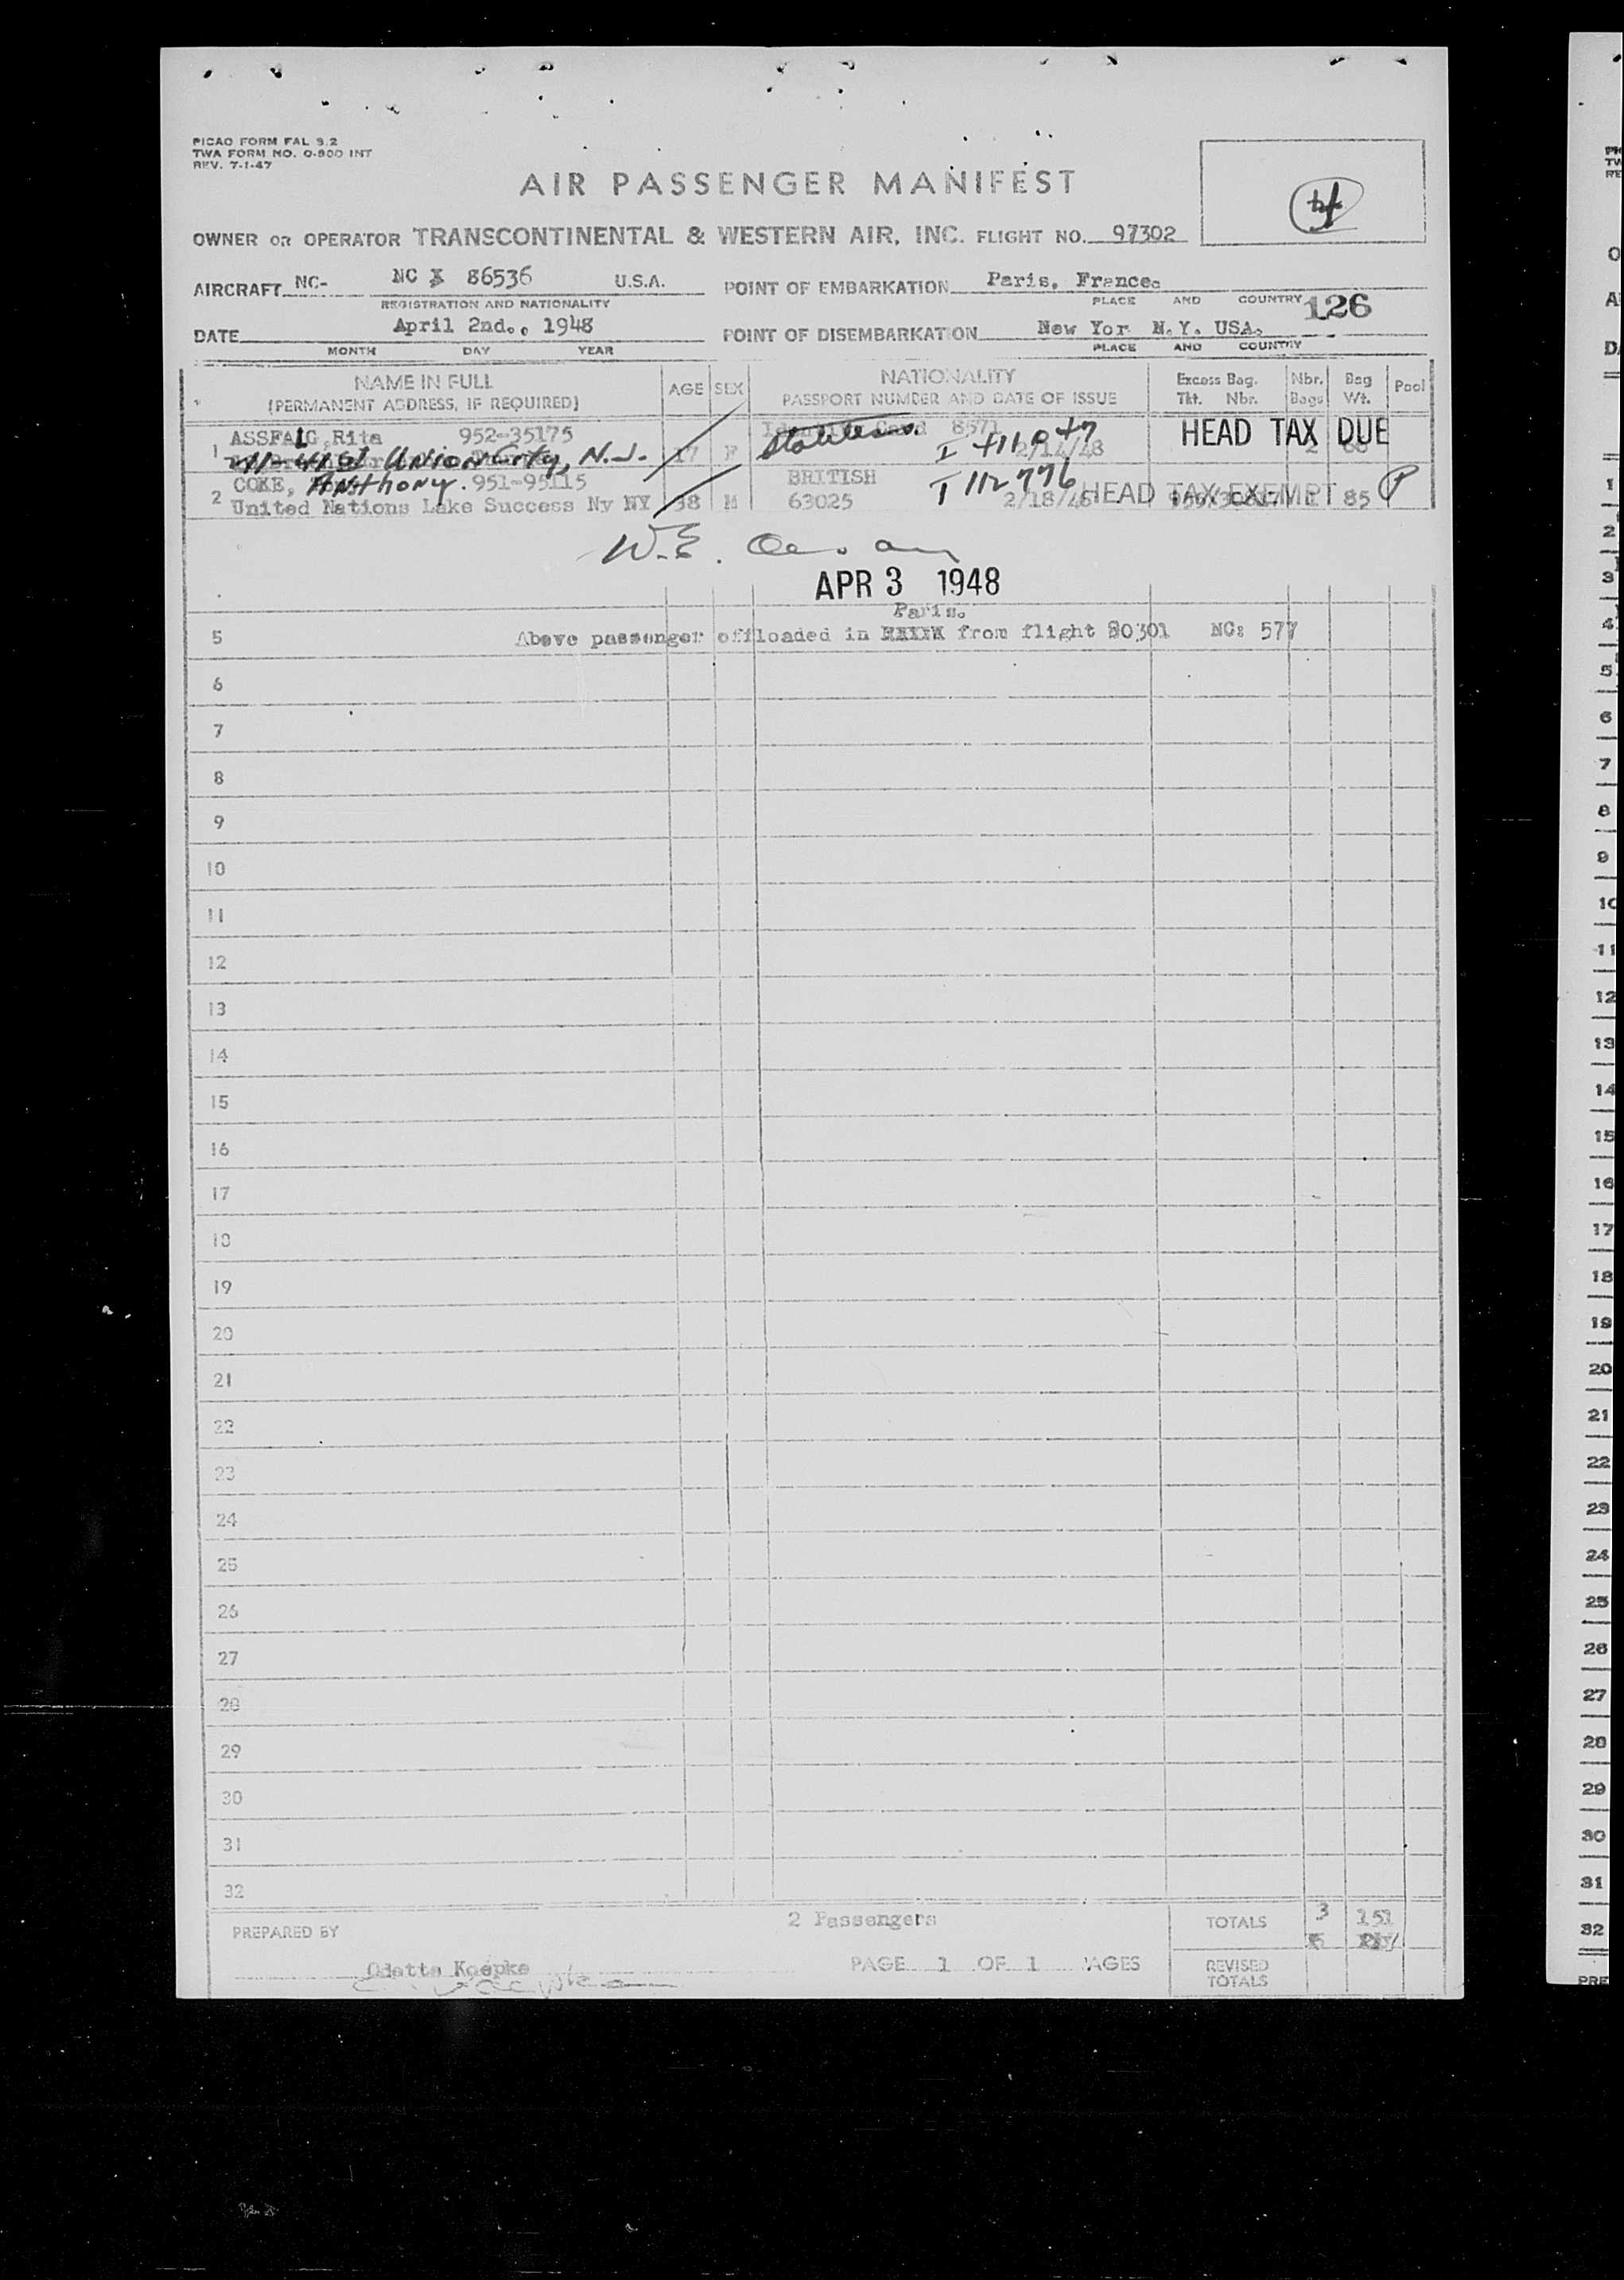 PICAO FORM FAL 3.2
TWA FORM NO. O-800 INT
REV. 7-1-47
AIR PASSENGER MANIFEST
OWNER OR OPERATOR TRANSCONTINENTAL & WESTERN AIR, INC. FLIGHT NO. 97302
AIRCRAFT NC- NC 86536 U.S.A. POINT OF EMBARKATION Paris, France.
REGISTRATION AND NATIONALITY PLACE AND COUNTRY 126
DATE April 2nd., 1948 POINT OF DISEMBARKATION New Yor N.Y. USA.
MONTH DAY YEAR PLACE AND COUNTRY
NAME IN FULL AGE SEX NATIONALITY Excess Bag. Nbr. Bag Pool
(PERMANENT ADDRESS, IF REQUIRED) PASSPORT NUMBER AND DATE OF ISSUE Tkt. Nbr. Bags Wt.
ASSFALG, Rita 952-35175 Identity Card 8571 HEAD TAX DUE
1 41 St Union City, N.J. 17 F Stateless 2/14/48 2
COKE, Anthony. 951-95115 BRITISH I 112776
2 United Nations Lake Success Ny NY 38 M 63025 2/18/46 HEAD TAX EXEMPT 1 85 P
W.E.
APR 3 1948
Paris.
5 Above passenger offloaded in from flight 80301 NC: 577
6
7
8
9
10
11
12
13
14
15
16
17
18
19
20
21
22
23
24
25
26
27
28
29
30
31
32
PREPARED BY 2 Passengers TOTALS 3 151
Odette Koepke PAGE 1 OF 1 PAGES REVISED
TOTALS
1
2
3
4
5
6
7
8
9
10
11
12
13
14
15
16
17
18
19
20
21
22
23
24
25
26
27
28
29
30
31
32
PRE